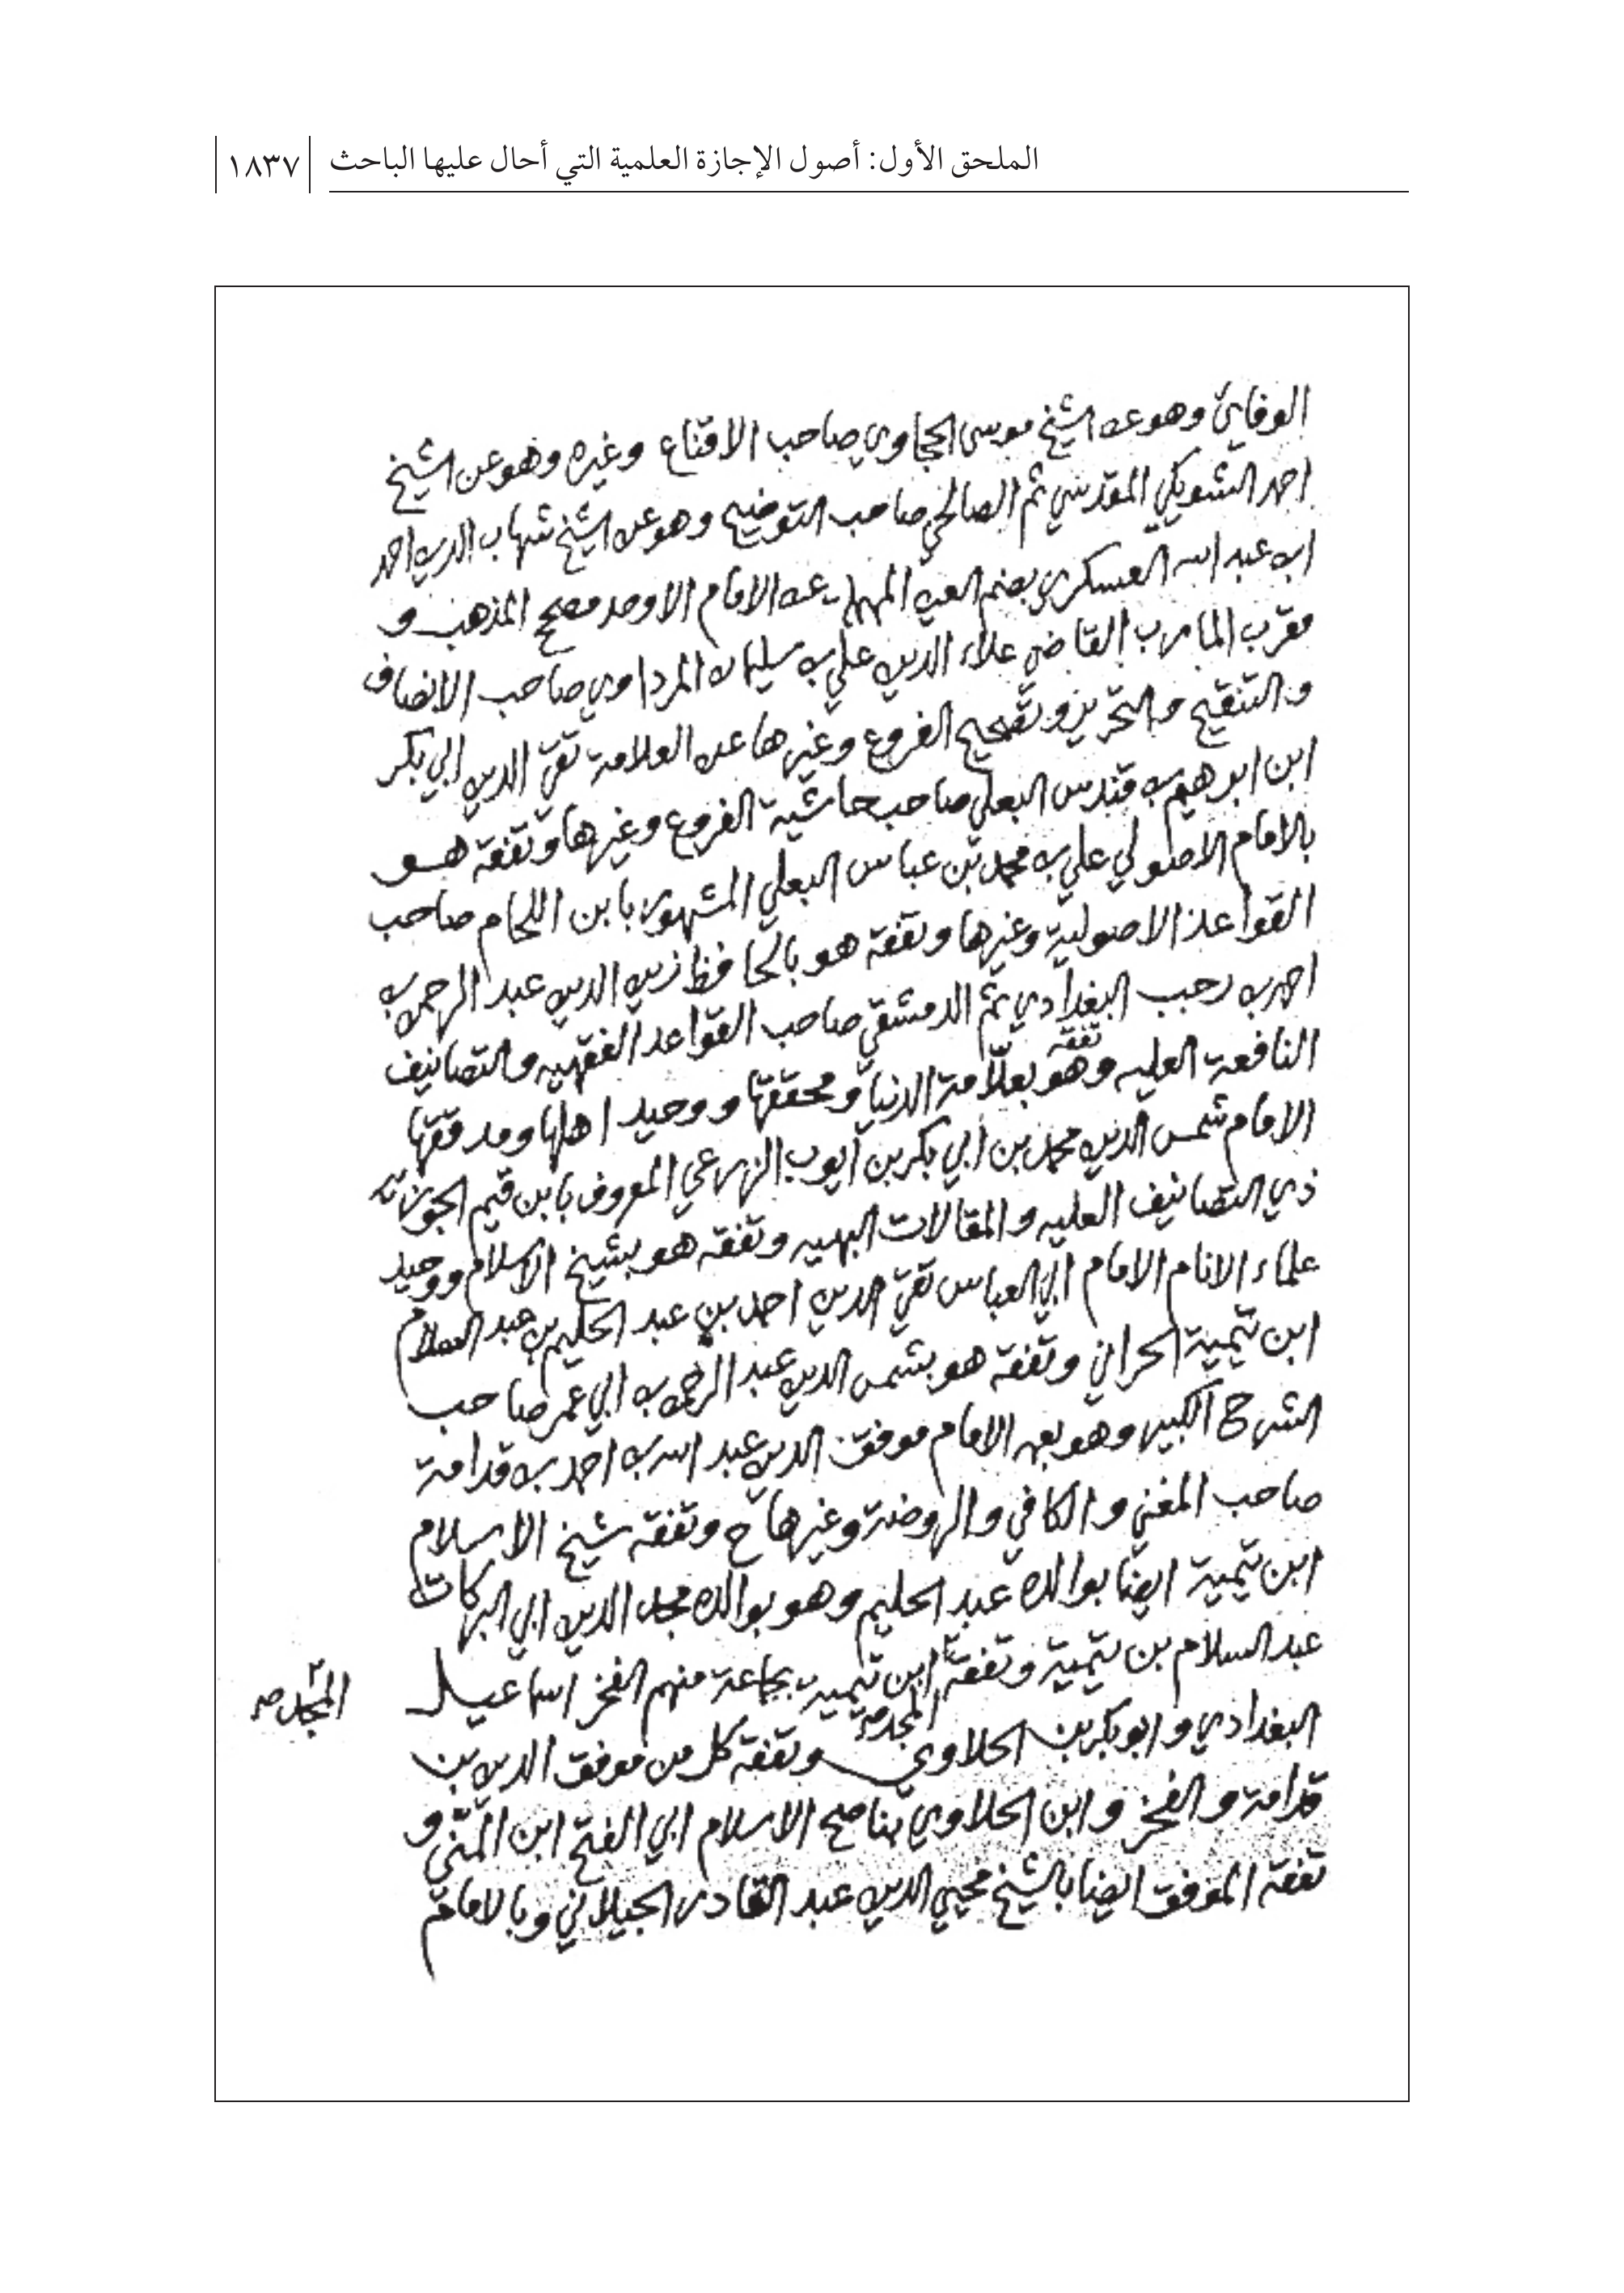 الملحق الأول: أصول الإجازة العلمية التي أحال عليها الباحث
١٨٣٧
الوفائي وهو عن الشيخ موسى الحجاوي صاحب الاقناع وغيره وهو عن الشيخ
احمد الشويكي المقدسي ثم الصالحي صاحب التوضيح وهو عن الشيخ شهاب الدين احمد
ابن عبد الله العسكري بضم العين المهملة عن الامام الاوحد مصحح المذهب و
مقرب المارب القاضي علاء الدين علي بن سليمان المرداوي صاحب الانصاف
و التنقيح والتحرير وتصحيح الفروع وغيرها عن العلامة تقي الدين ابي بكر
ابن ابرهيم بن قندس البعلي صاحب حاشية الفروع وغيرها وتفقه هو
بالامام الاصولي علي بن محمد بن عباس البعلي المشهور بابن اللحام صاحب
القواعد الاصولية وغيرها وتفقه هو بالحافظ زين الدين عبد الرحمن بن
احمد بن رجب البغدادي ثم الدمشقي صاحب القواعد الفقهيه والتصانيف
النافعة العليه وهو تفقه بعلّامة الدنيا ومحققها ووحيد اهلها ومدققها
الامام شمس الدين محمد بن ابي بكر بن ايوب الزرعي المعروف بابن قيم الجوزية
ذي التصانيف العليه والمقالات البهيه وتفقه هو بشيخ الاسلام ووحيد
علماء الانام الامام ابي العباس تقي الدين احمد بن عبد الحليم بن عبد السلام
ابن تيمية الحراني وتفقه هو بشمس الدين عبد الرحمن بن ابي عمر صاحب
الشرح الكبير وهو بعمه الامام موفق الدين عبد الله بن احمد بن قدامة
صاحب المغني والكافي والروضة وغيرها ح وتفقه شيخ الاسلام
ابن تيمية ايضا بوالده عبد الحليم وهو بوالده مجد الدين ابي البركات
عبد السلام بن تيمية وتفقه ابن تيمية بجماعة منهم الفخر اسماعيل
المجد صح
المجد صح
البغدادي وابو بكر بن الحلاوي وتفقه كل من موفق الدين بن
قدامة والفخر وابن الحلاوي بناصح الاسلام ابي الفتح ابن المنّي و
تفقه الموفق ايضا بالشيخ محيي الدين عبد القادر الجيلاني وبالامام